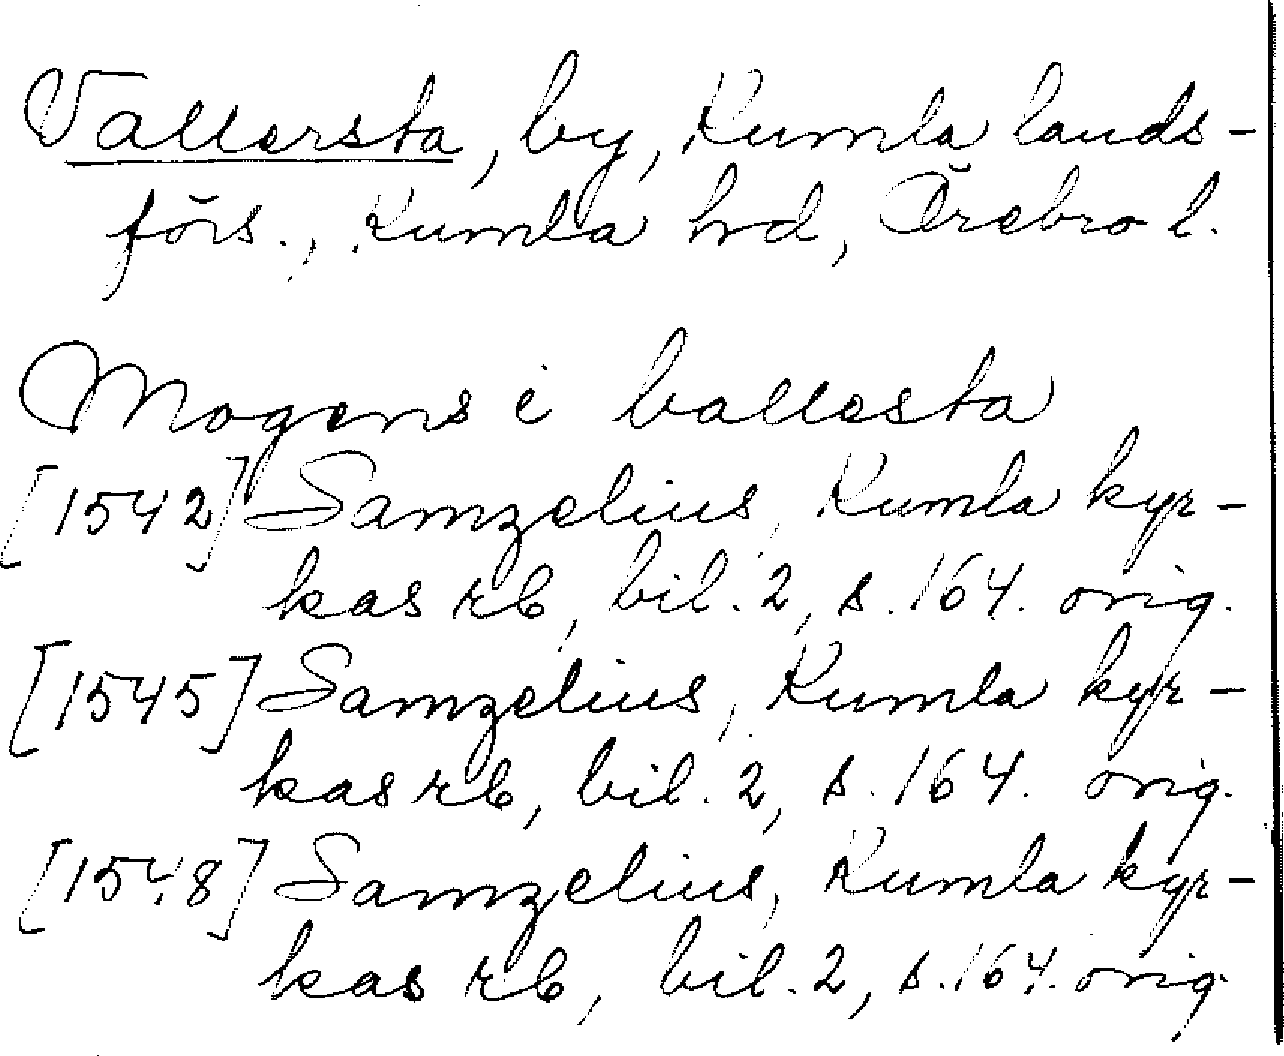 Vallersta, by, Kumla lands-
förs., Kumla hd, Örebro l.
Mogens i vallesta
[1542] Samzelius, Kumla kyr-
kas rb, bil. 2, s. 164. orig.
[1545] Samzelius, Kumla kyr-
kas rb, bil. 2, s. 164. orig.
[1548] Samzelius, Kumla kyr-
kas rb, bil. 2, s. 164. orig.